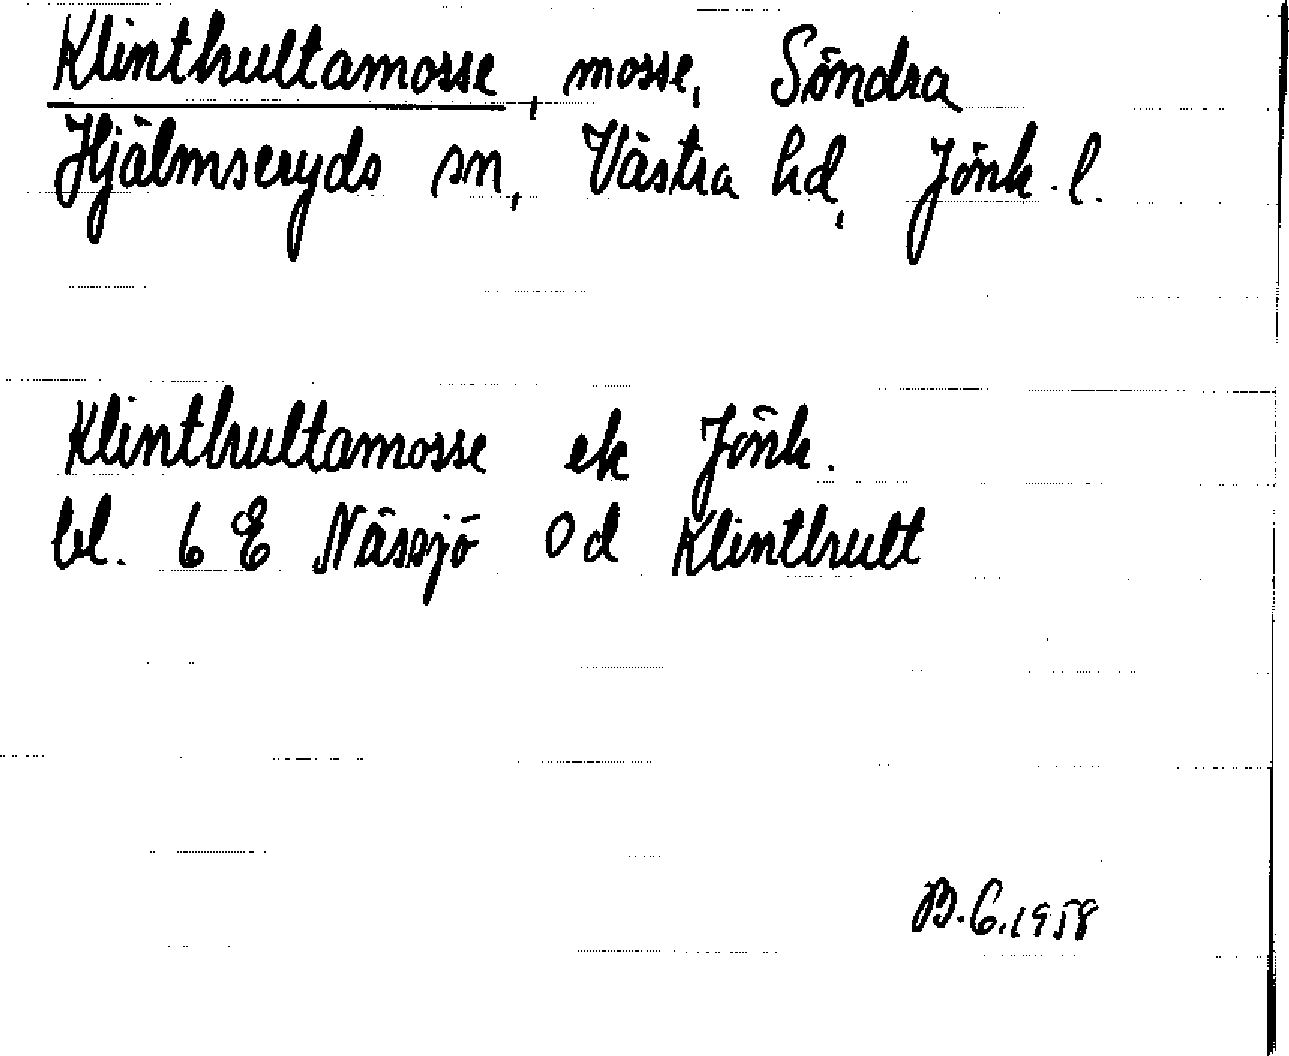 Klinthultamosse, mosse, Söndra
Hjälmseryds sn, Västra hd, Jönk. l.
Klinthultamosse ek Jönk.
bl. 6 E Nässjö 0 d Klinthult
B.G. 1958